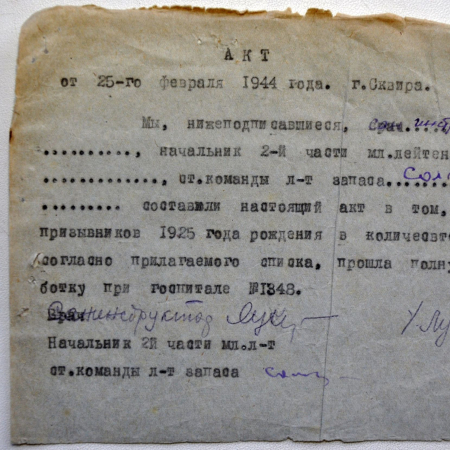 АКТ
от 25-го февраля 1944 года. г.Сквира.
Мы, нижеподписавшиеся,
.........., начальник 2-й части мл.лейтен
............, ст.команды л-т запаса.........
......... составили настоящий акт в том,
призывников 1925 года рождения в количестве
согласно прилагаемого списка, прошла полну
ботку при госпитале №1348.
Врач
Начальник 2й части мл.л-т
ст.команды л-т запаса